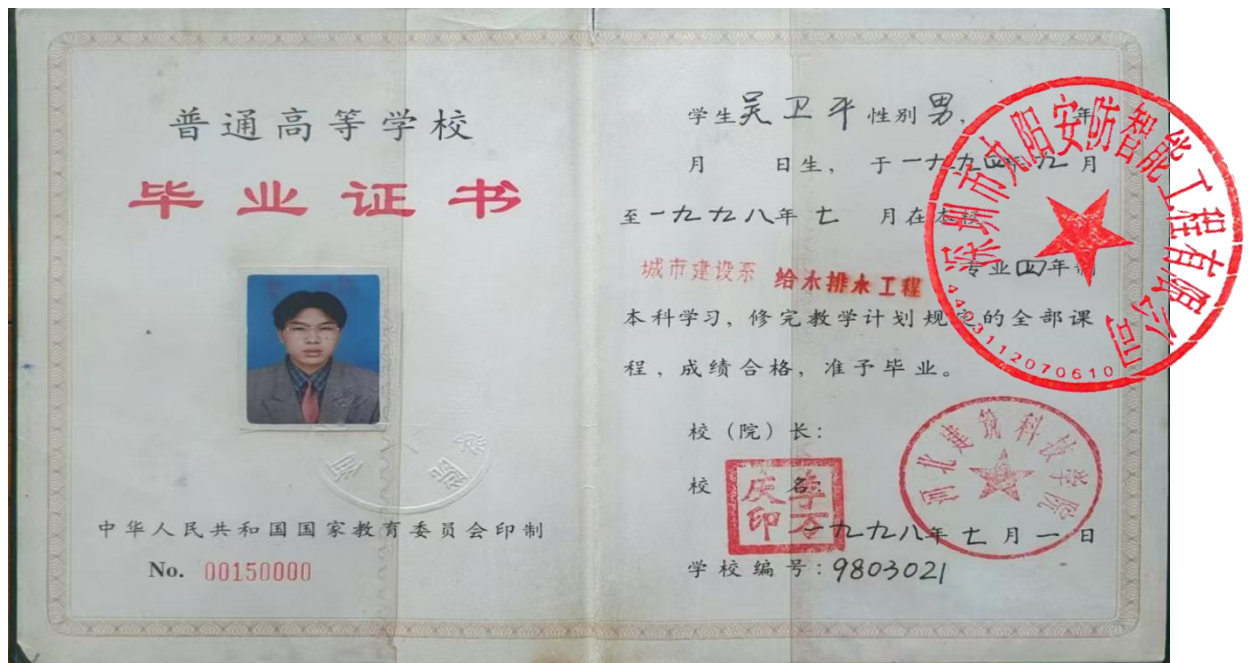 普通高等学校
毕业证书
中华人民共和国国家教育委员会印制
No. 00150000
学生吴卫平性别男, 年
月 日生, 于一九九四年九月
至一九九八年七 月在本校
城市建设系 给水排水工程 专业四年制
本科学习, 修完教学计划规定的全部课
程, 成绩合格, 准予毕业。
校（院）长:
校 名:
李万庆印
一九九八年七月一日
学校编号: 9803021
河北建筑科技学院
深圳市九阳安防智能工程有限公司
4403112070610